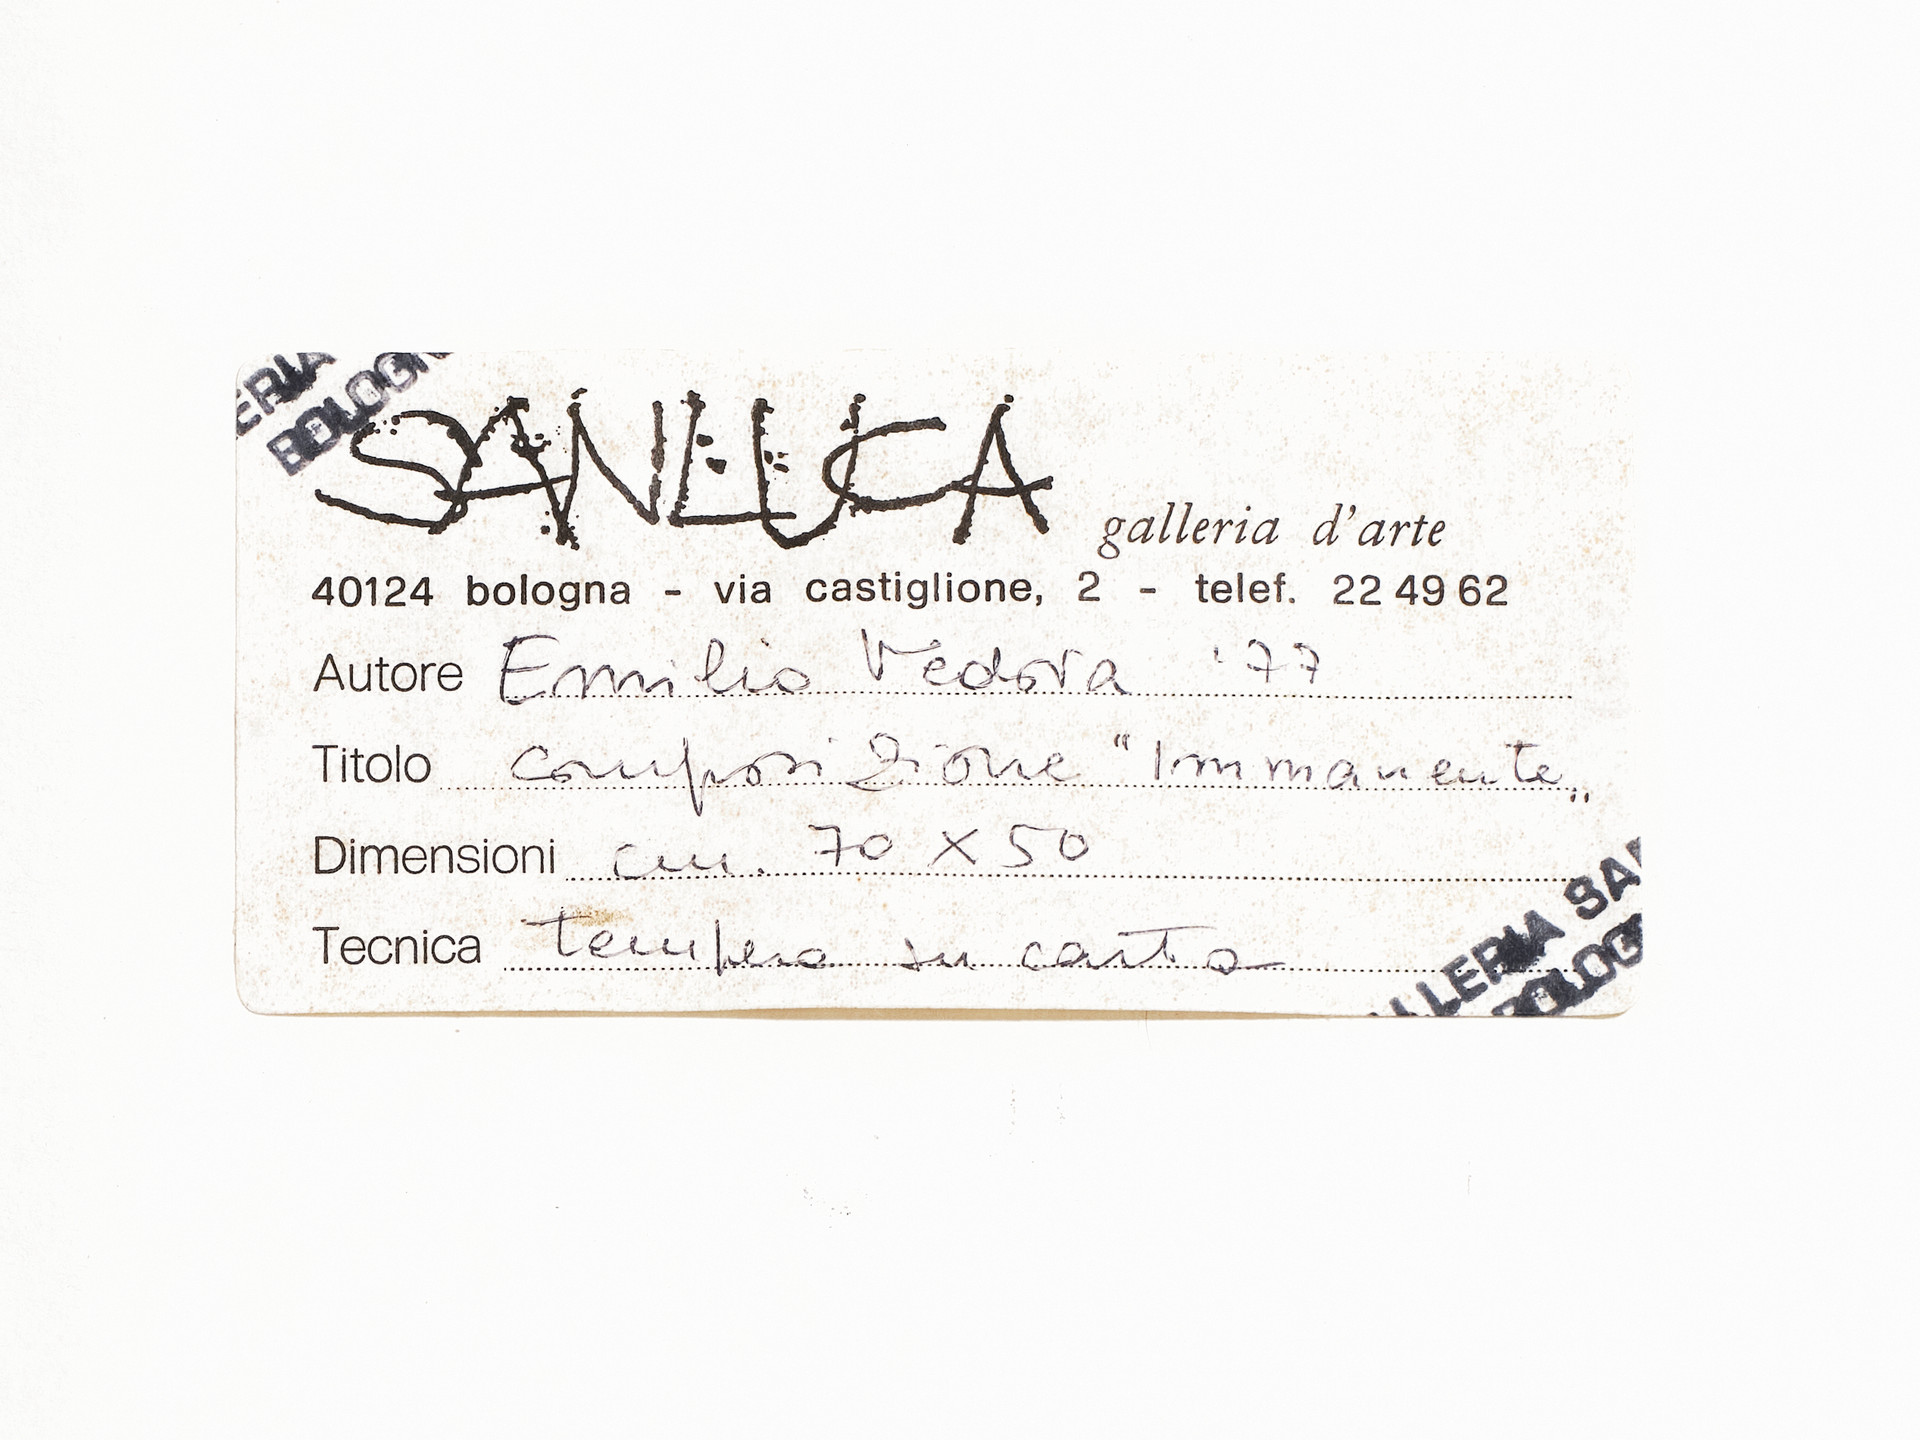 ERIA
BOLOGN
SAN LUCA galleria d'arte
40124 bologna - via castiglione, 2 - telef. 22 49 62
Autore Emilio Vedova '77
Titolo composizione "Immanente„
Dimensioni cm. 70 X 50
Tecnica tempera su carta
LLERIA SAN
BOLOG